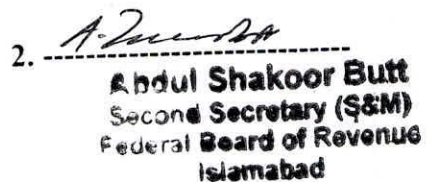 2.
Abdul Shakoor Butt
Second Secretary (S&M)
Federal Board of Revenue
Islamabad